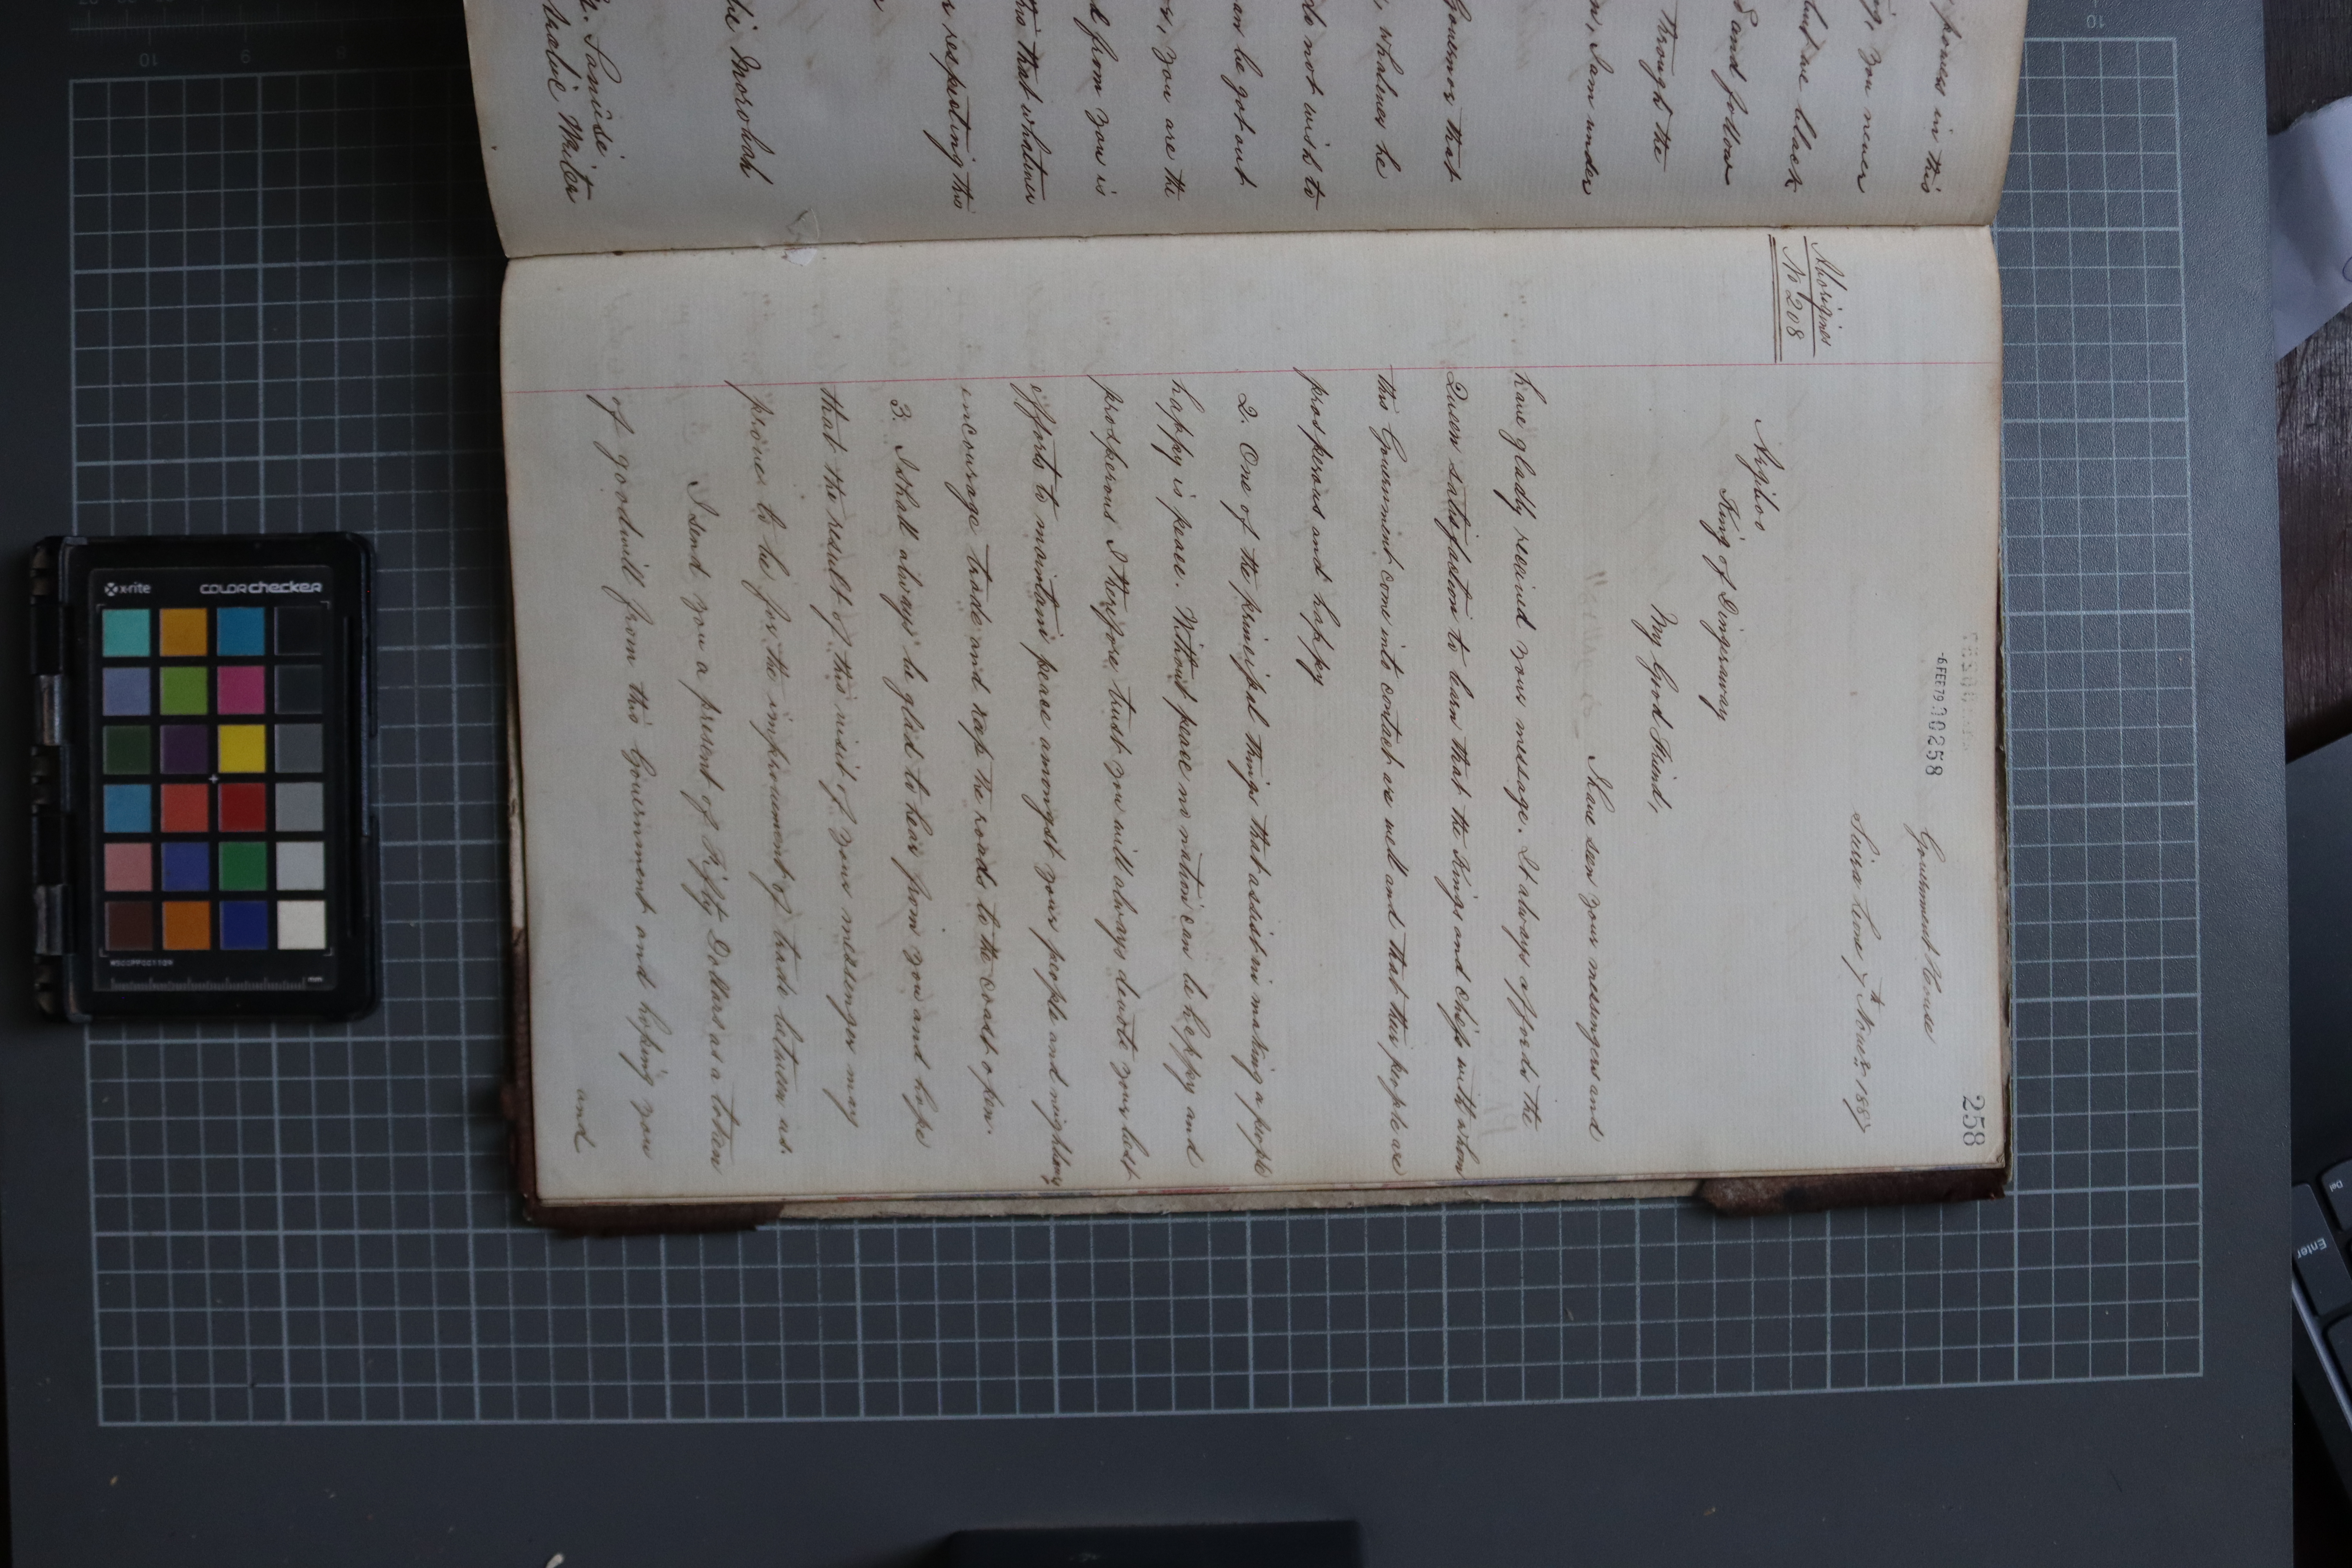 powers in this
you never
but we black
and follow
through the
I am under
Governor that
whatever he
do not wish to
can be got out
you are the
from you is
that whatever
respecting this
Morobah
Sanisie
Arabic Writer
258
-6 FEB 79 00258
Government House
Sierra Leone 7th Novr 1887
Aborigines
No 208
King of Dinguiraway
My Good Friend,
I have seen your messengers and
have gladly received your message. It always affords the
Queen satisfaction to learn that the Kings and Chiefs with whom
this Government come into contact are well and that their people are
prosperous and happy
2. One of the principal things that assist in making a people
happy is peace. Without peace no nation can be happy and
prosperous I therefore trust you will always devote your best
efforts to maintain peace amongst your people and neighbours
encourage trade and keep the roads to the coast open.
3. I shall always be glad to hear from you and hope
that the result of this visit of your messenger may
prove to be for the improvement of trade between us.
I send you a present of Fifty Dollars as a token
of goodwill from this Government and hoping you
and
x-rite
colorchecker
mm
10
9
8
10
Enter
Del